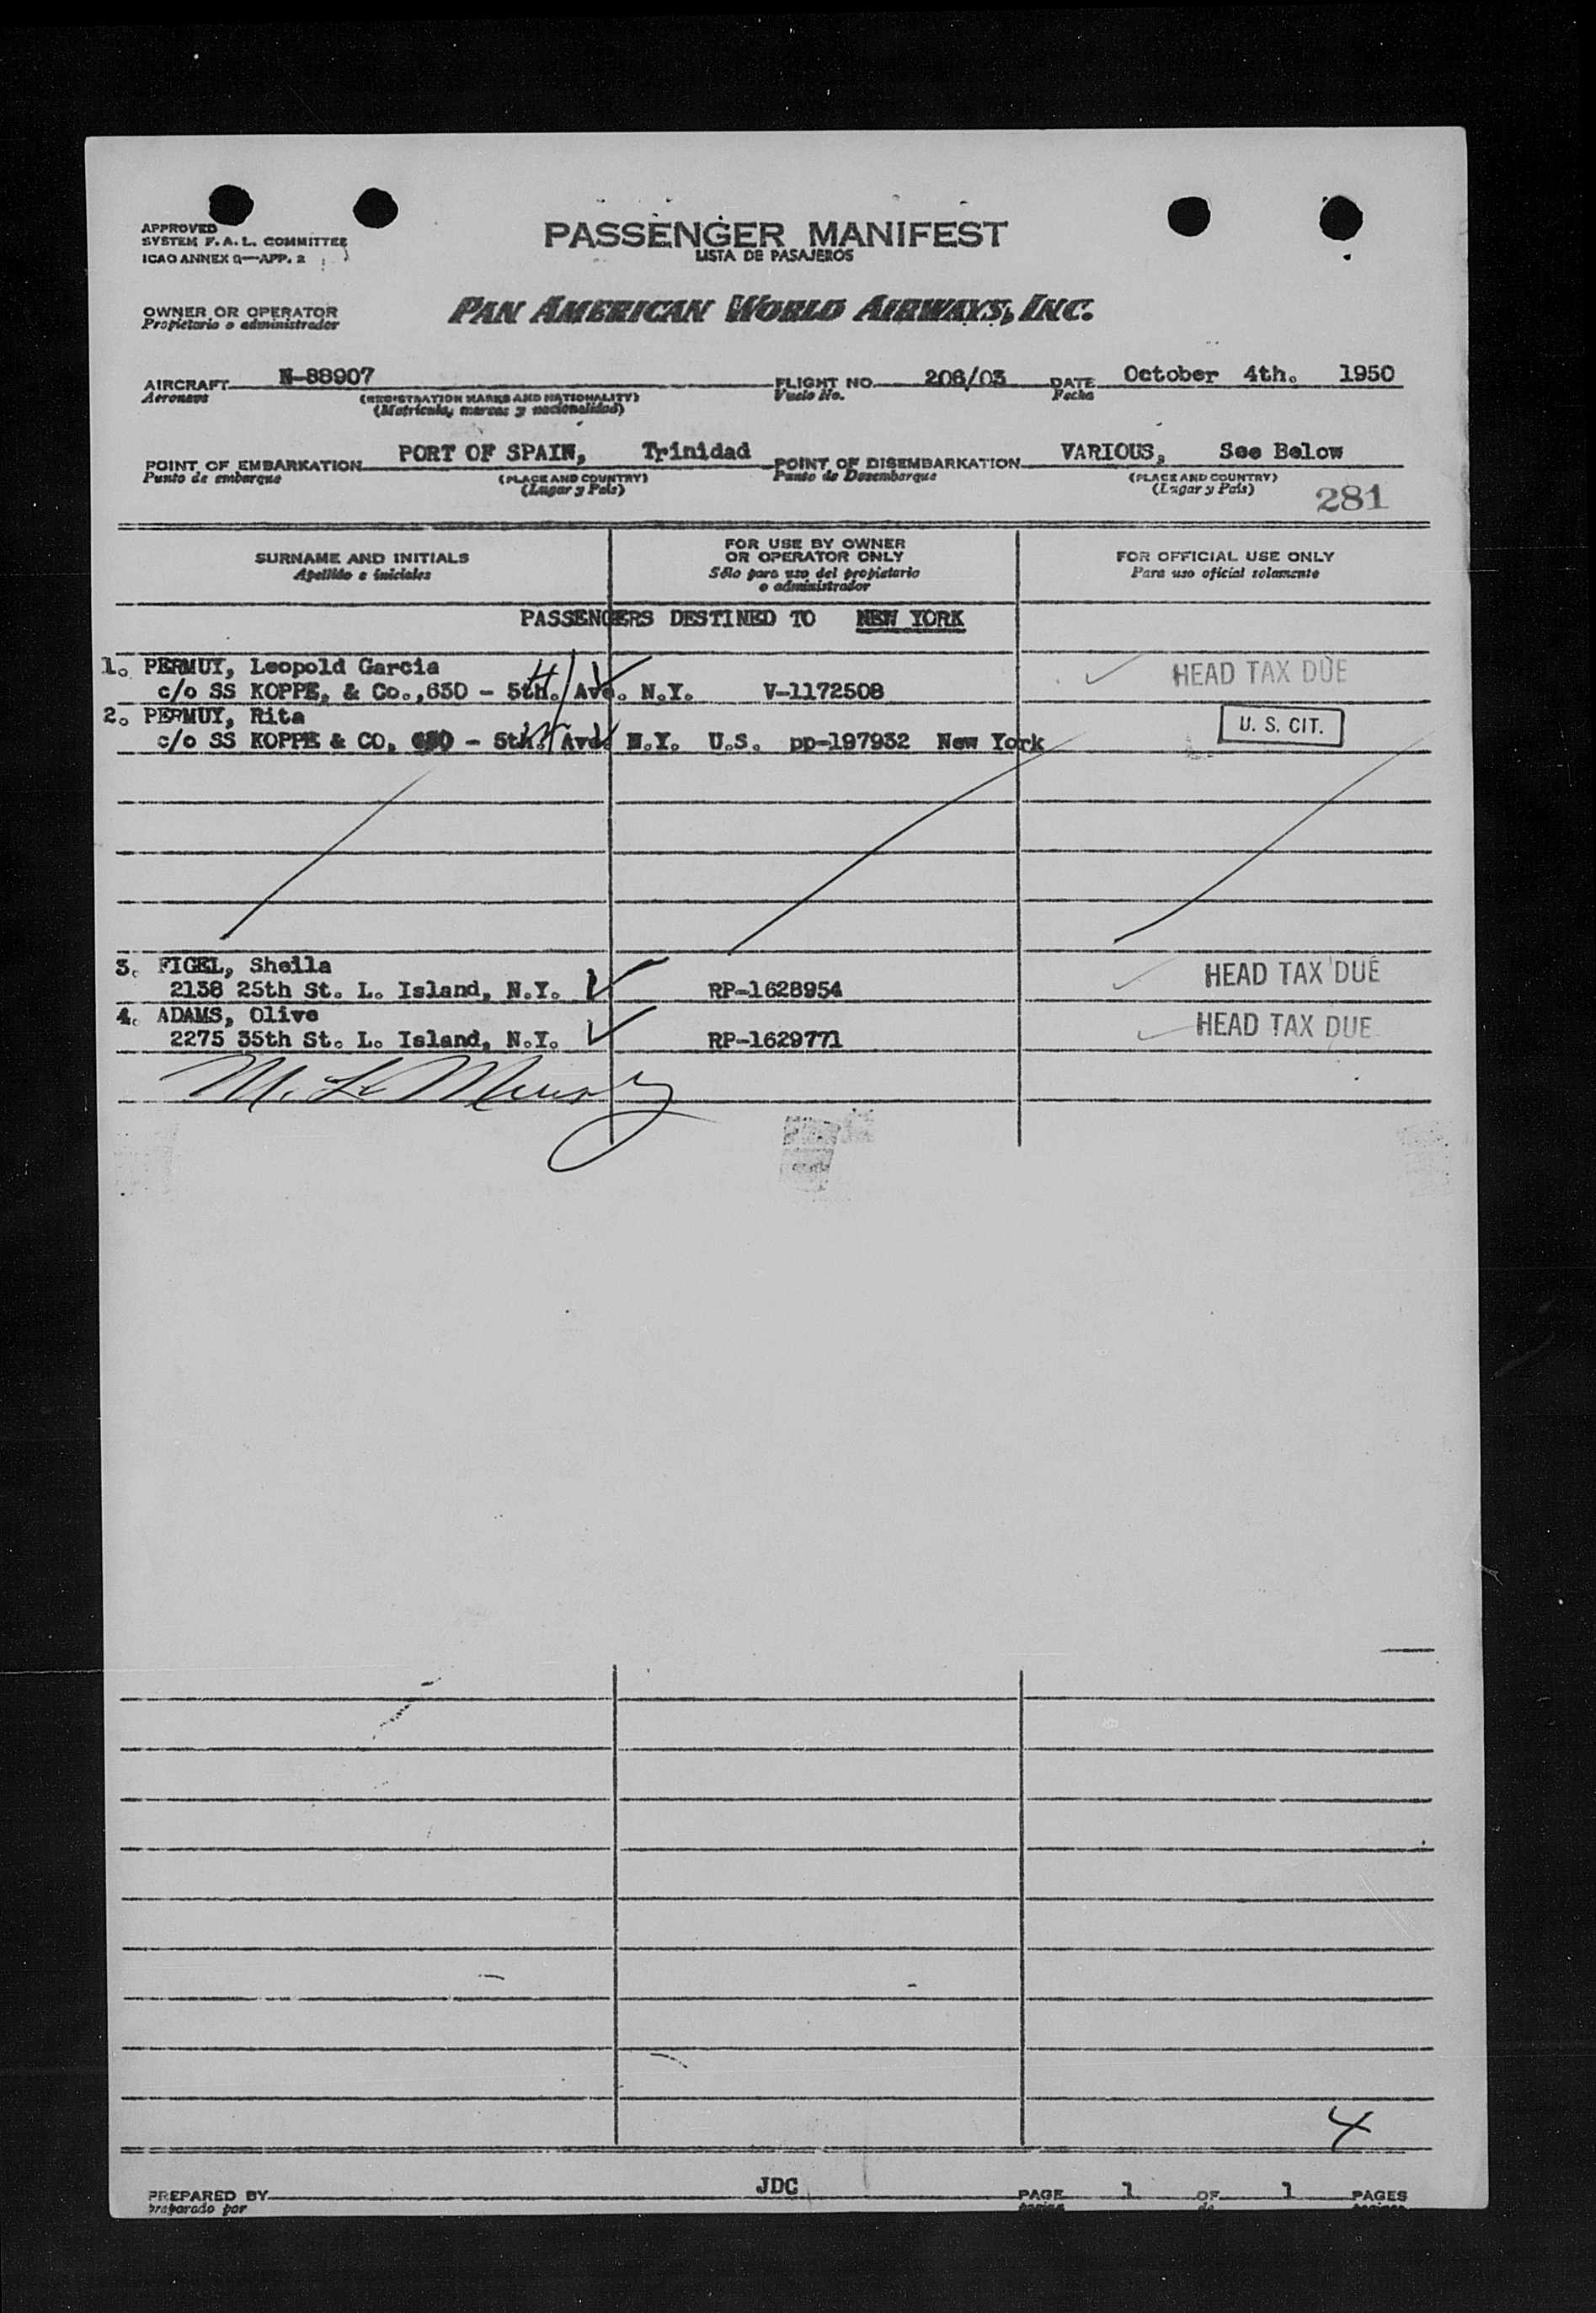 APPROVED
SYSTEM F.A.L. COMMITTEE
ICAO ANNEX 9—APP. 2
PASSENGER MANIFEST
LISTA DE PASAJEROS
OWNER OR OPERATOR
Propietario o administrador
PAN AMERICAN WORLD AIRWAYS, INC.
AIRCRAFT N-88907 FLIGHT NO. 206/03 DATE October 4th. 1950
Aeronave (REGISTRATION MARKS AND NATIONALITY) Vuelo No. Fecha
(Matrícula, marcas y nacionalidad)
POINT OF EMBARKATION PORT OF SPAIN, Trinidad POINT OF DISEMBARKATION VARIOUS, See Below
Punto de embarque (PLACE AND COUNTRY) Punto de Desembarque (PLACE AND COUNTRY)
(Lugar y País) (Lugar y País)
281
SURNAME AND INITIALS FOR USE BY OWNER OR OPERATOR ONLY FOR OFFICIAL USE ONLY
Apellido e iniciales Sólo para uso del propietario o administrador Para uso oficial solamente
PASSENGERS DESTINED TO NEW YORK
1. PERMUY, Leopold Garcia HEAD TAX DUE
c/o SS KOPPE, & Co.,630 - 5th. Ave. N.Y. V-1172508
2. PERMUY, Rita U. S. CIT.
c/o SS KOPPE & CO. 630 - 5th. Ave. N.Y. U.S. pp-197932 New York
3. FIGEL, Sheila HEAD TAX DUE
2138 25th St. L. Island, N.Y. RP-1628954
4. ADAMS, Olive HEAD TAX DUE
2275 35th St. L. Island, N.Y. RP-1629771
4
PREPARED BY JDC PAGE 1 OF 1 PAGES
preparado por pagina de paginas